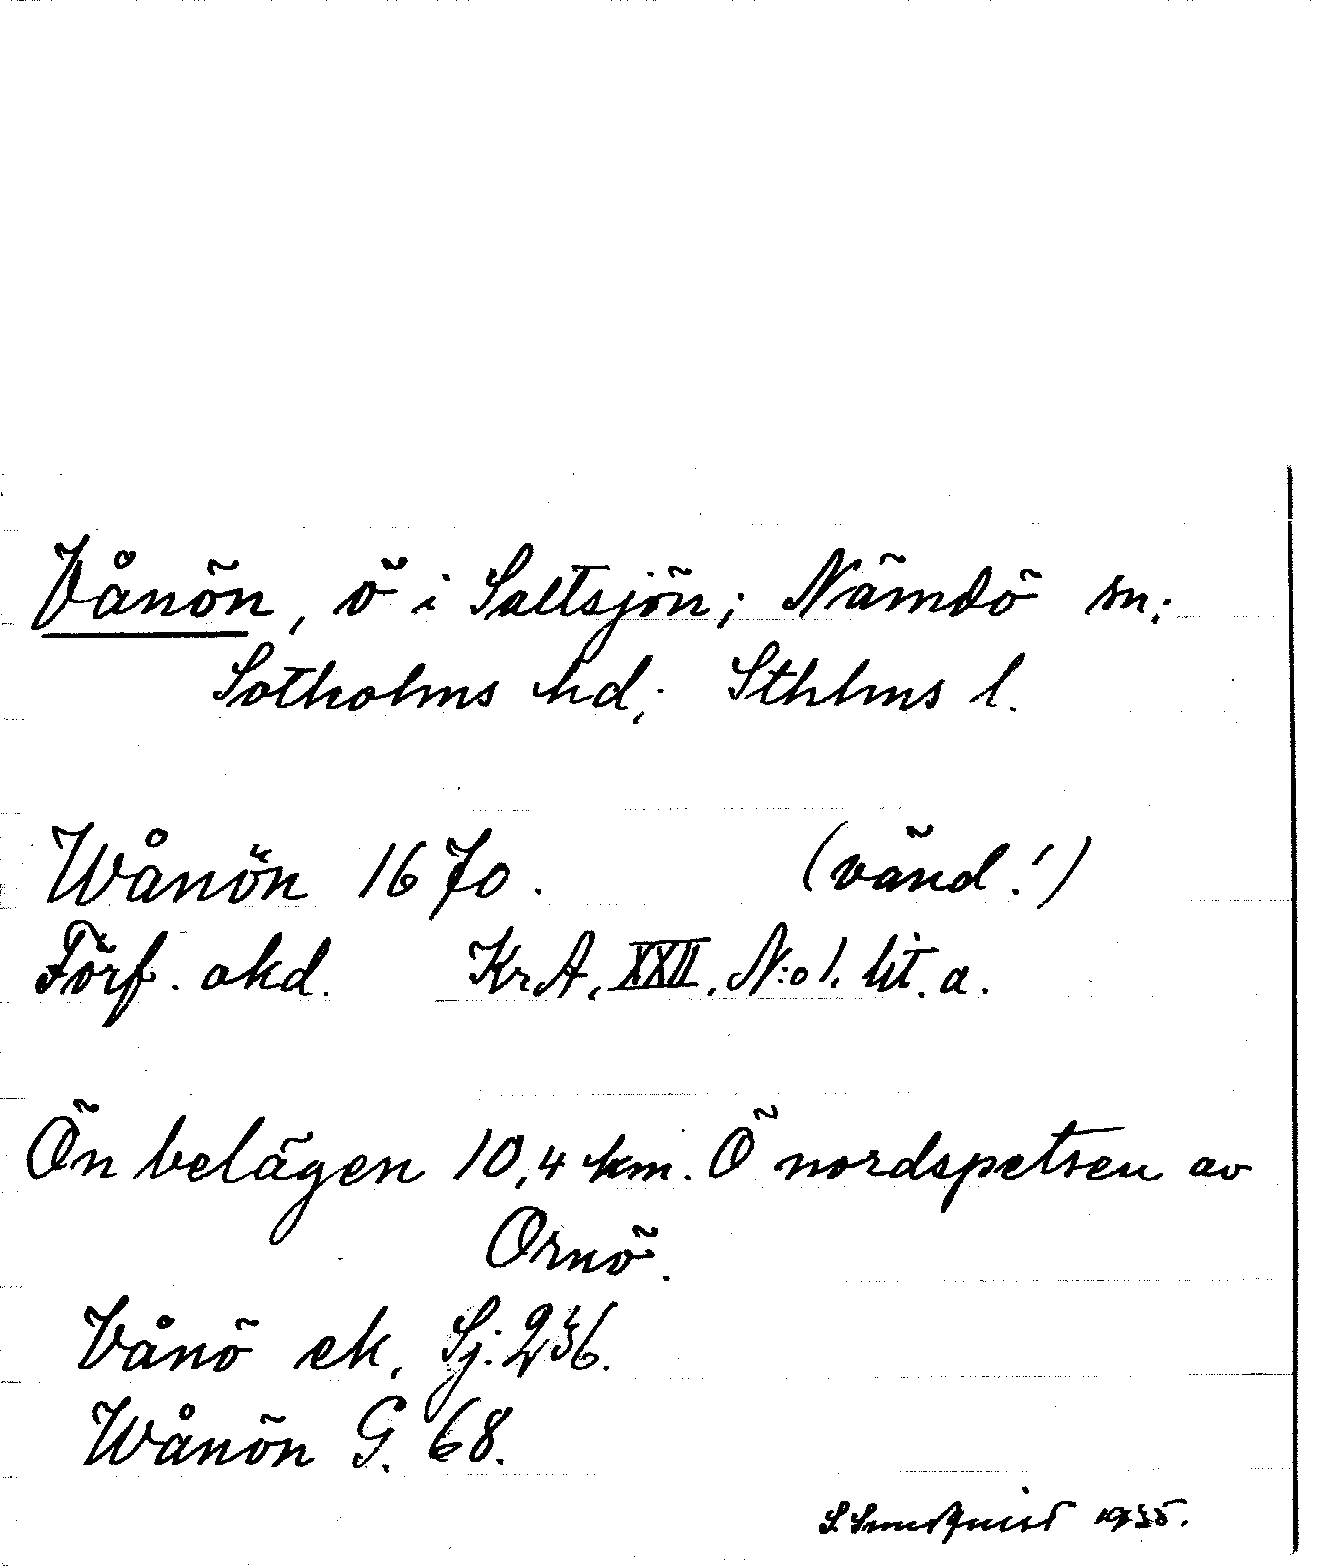 Vånön, ö i Saltsjön; Nämdö sn;
Sotholms hd; Sthlms l.
Wånön 1670. (vänd!)
Förf. akd. KrA. XXII. N:o 1. lit. a.
Ön belägen 10,4 km. Ö nordspetsen av
Ornö.
Vånö ek. Sj. 236.
Wånön G. 68.
S. Sundquist 1935.